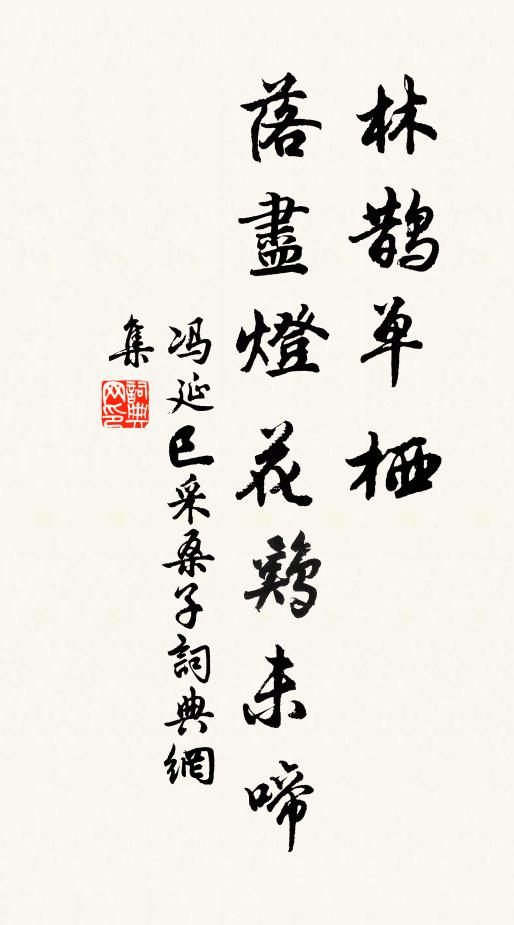 林鹊单栖
落盡燈花鷄未啼
冯延巳采桑子詞典網
集
詞典
网印